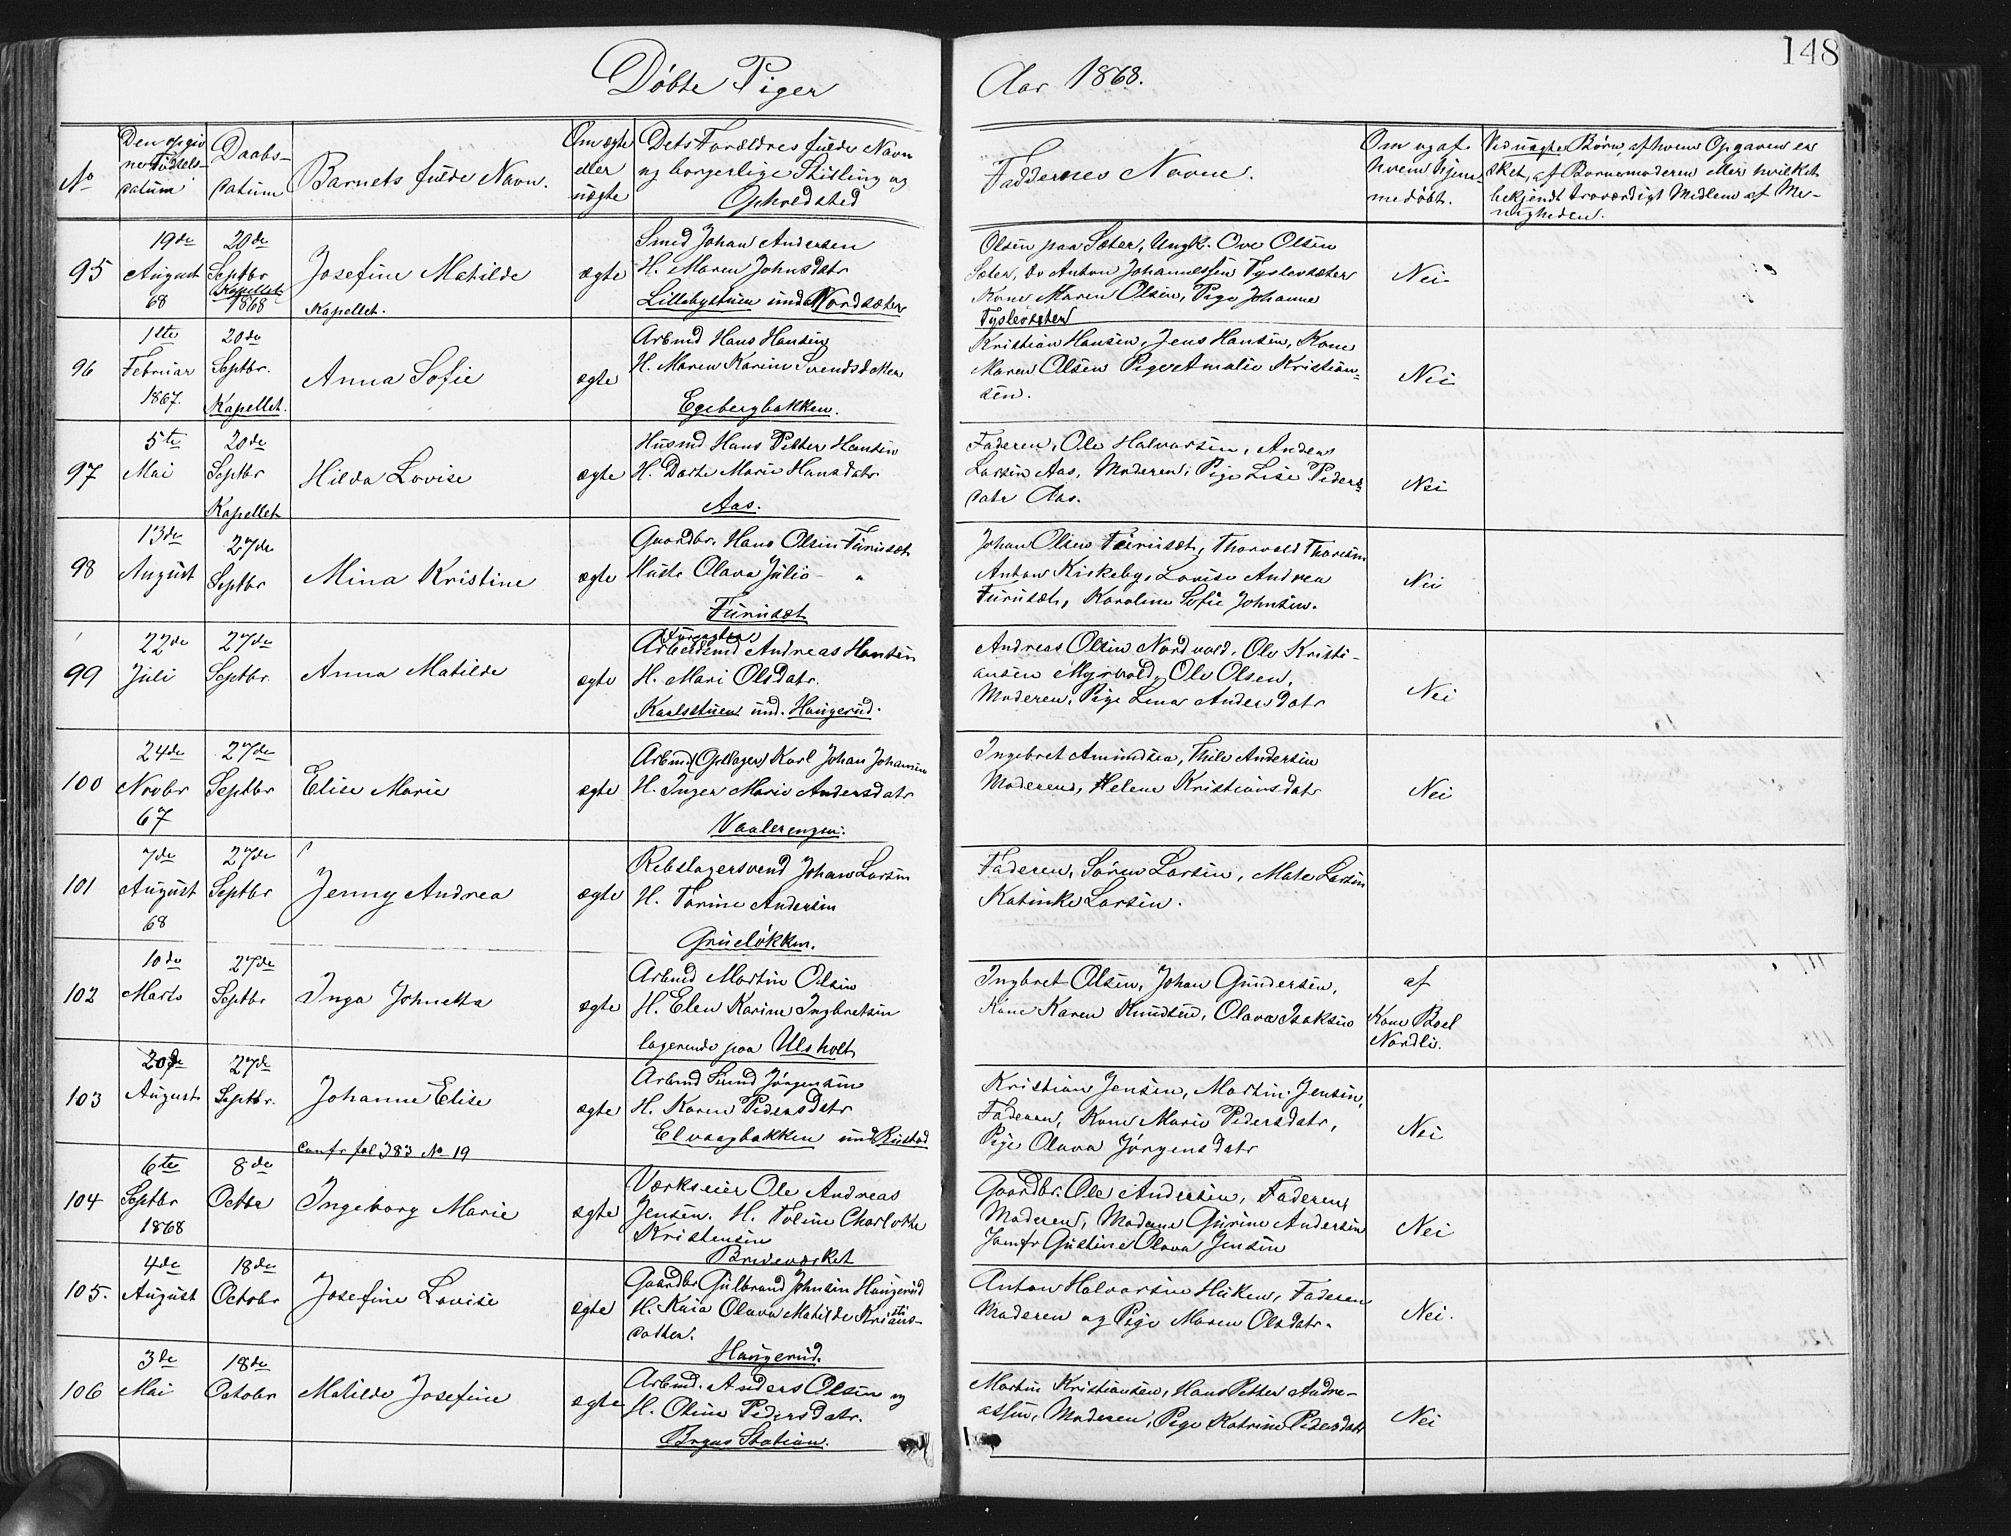 148
Döbte Piger
Aar 1868.
No
Den opgiv
ne Födsels-
datum
Daabs-
datum
Barnets fulde Navn.
Om ægte
eller
uægte
Dets Forældres fulde Navn
og borgerlige Stilling og
Opholdsted
Faddernes Navne.
Om og af
hvem hjem-
medöbt.
Ved uægte Börn, af hvem Opgaven er
sket, af Barnemoderen eller hvilket
bekjendt troværdigt Medlem af Me-
nigheden.
95
19de
August
68
20de
Septbr
Kapellet
1868
Josefine Matilde
Kapellet.
ægte
Smed Johan Andersen
H. Maren Johnsdatr
Lillebystuen under Nordsæter
Olsen paa Sæter, Ungk. Ove Olsen
Sæter, do Anton Johannessen Tyslevsæter
Kone Maren Olsen, Pige Johanne
Tyslevsæter
Nei
96
1ste
Februar
1867.
20de
Septbr.
Kapellet.
Anna Sofie
ægte
Arbmd Hans Hansen
H. Maren Karine Svendsdatter
Egebergbakken.
Kristian Hansen, Jens Hansen, Kone
Maren Olsen Pige Amalie Kristian-
sen.
Nei
97
5te
Mai
20de
Septbr
Kapellet
Hilda Lovise
ægte
Husmd Hans Petter Hansen
H. Dorte Marie Hansdatr
Aas.
Faderen, Ole Halvorsen, Anders
Larsen Aas, Moderen, Pige Lise Peders
datr Aas.
Nei
98
13de
August
27de
Septbr
Mina Kristine
ægte
Gaardbr. Hans Olsen Furuset
Hustr Olava Julie — "
Furuset
Johan Olsen Furuset, Thorvald Thoresen
Anton Kirkeby, Lovise Andrea
Furuset, Karoline Sofie Johnsen.
Nei
99
22de
Juli
27de
Septbr.
Anna Matilde
ægte
Arbeidsmd Andreas Hansen
H. Mari Olsdatr.
Karlsstuen und. Haugerud.
Andreas Olsen Nordvold, Ole Kristi-
ansen Myrvold, Ole Olsen,
Moderen, Pige Lena Andersdatr
Nei
100
24de
Novbr
67
27de
Septbr
Elise Marie
ægte
Arbmd (Gelbager) Karl Johan Johansen
H. Inger Marie Andersdatr
Vaalerengen.
Ingebret Amundsen, Thile Andersen
Moderen, Helene Kristiansdatr
Nei
101
7de
August
68
27de
Septbr
Jenny Andrea
ægte
Rebslagersvend Johan Larsen
H. Torine Andersen
Grüelökken.
Faderen, Sören Larsen, Mate Larsen
Katinke Larsen.
102
10de
Marts
27de
Septbr
Inga Johnetta
ægte
Arbmd Martin Olsen
H. Elen Karine Ingbretsen
logerende paa Ulsholt
Ingbret Olsen, Johan Gundersen,
Kone Karen Knudsen, Olava Isaksen
af
Kone Boel
Nordli.
103
20de
August
27de
Septbr.
Johanne Elise
confr fol 383 No 19
ægte
Arbmd Svend Jörgensen
H. Karen Pedersdatr
Elvaagbakken und Rustad
Kristian Jensen, Martin Jensen,
Faderen, Kone Marie Pedersdatr,
Pige Olava Jörgensdatr
Nei
104
6te
Septbr
1868
8de
Octbr
Ingeborg Marie
ægte
Værkseier Ole Andreas
Jensen. H. Toline Charlotte
Kristensen
Bredeværket
Gaardbr. Ole Andersen, Faderen,
Moderen, Madame Gurine Andersen
Jomfr Gustine Olava Jensen
Nei
105.
4de
August
18de
Octobr
Josefine Lovise
ægte
Gaardbr Gulbrand Johnsen Haugerud
H. Kaia Olava Matilde Kristians-
datter.
Haugerud.
Anton Halvorsen Haken, Faderen
Moderen og Pige Maren Olsdatr.
Nei.
106
3de
Mai
18de
Octobr
Matilde Josefine
ægte
Arbmd. Anders Olsen og
H. Oline Pedersdatr.
Bryns Station.
Martin Kristiansen, Hans Petter Andre-
assen, Moderen, Pige Katrine Pedersdatr
Nei